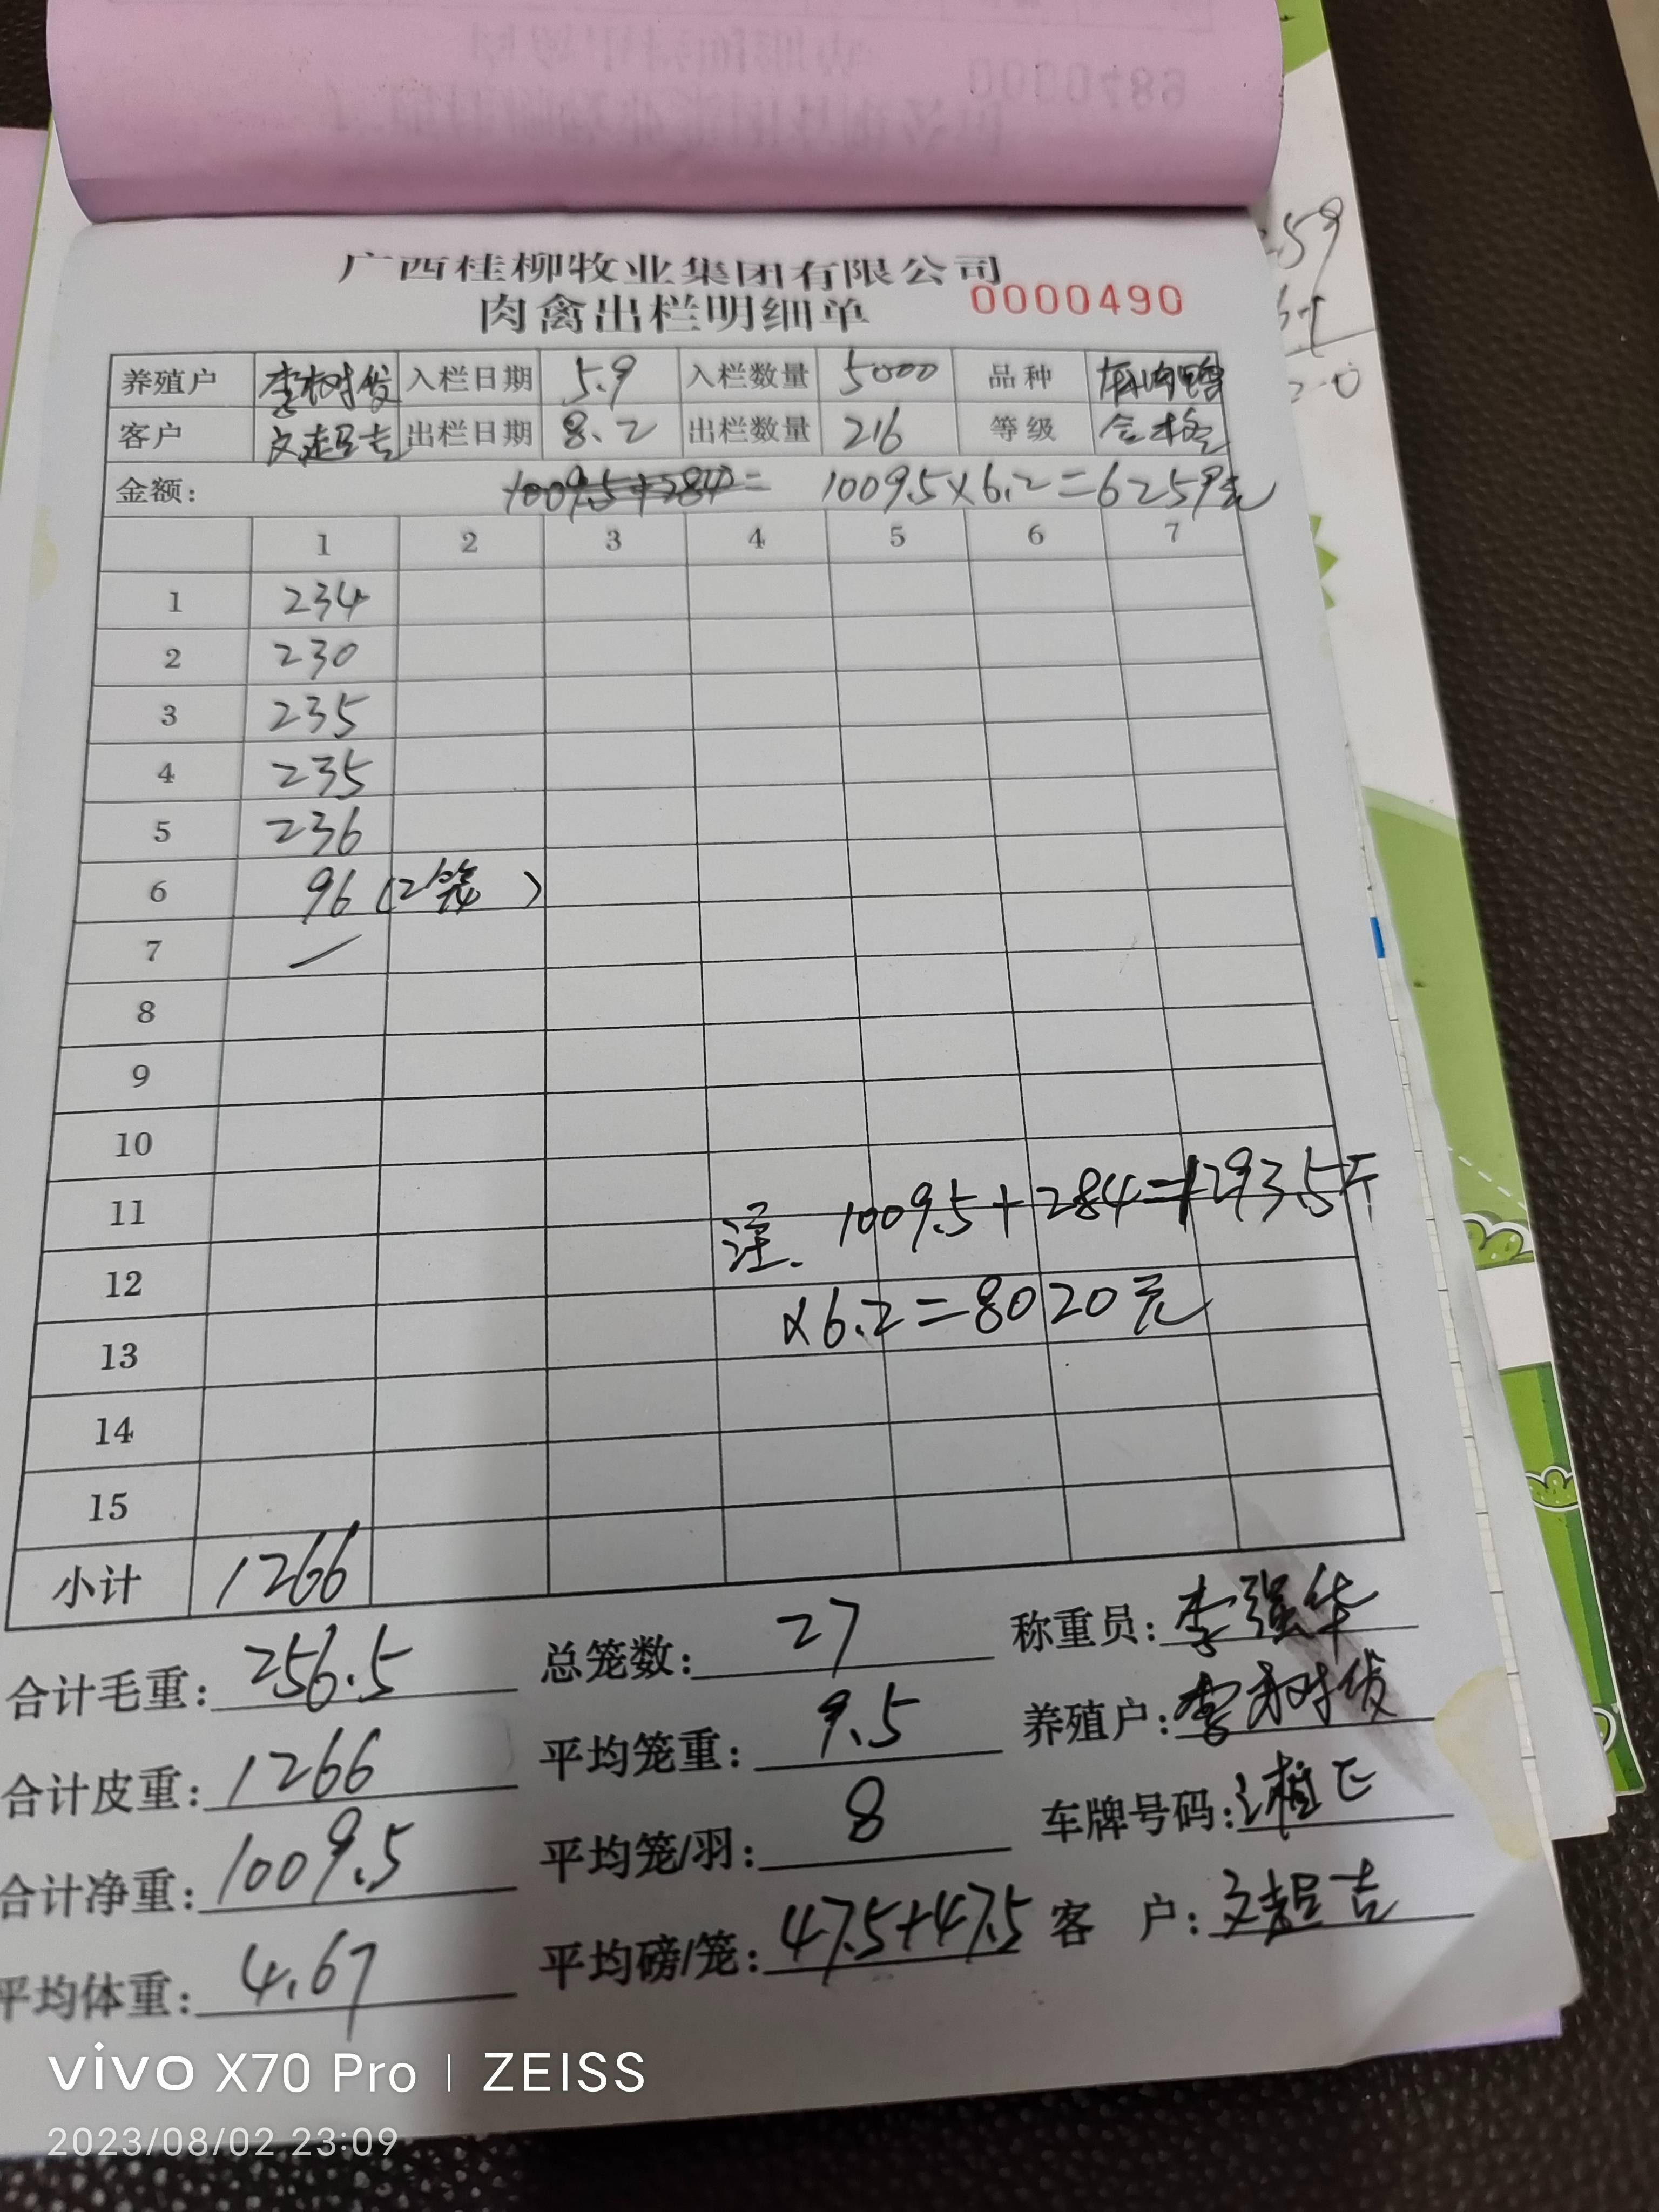 广西桂柳牧业集团有限公司
肉禽出栏明细单 0000490
养殖户 李树发 入栏日期 5.9 入栏数量 5000 品种
客户 文超吉 出栏日期 8.2 出栏数量 216 等级 合格
金额: 1009.5+284= 1009.5×6.2=6259元
1 2 3 4 5 6 7
1 234
2 230
3 235
4 235
5 236
6 96(2笼)
7
8
9
10
11
注. 1009.5+284=1293.5斤
12
×6.2=8020元
13
14
15
小计 1266
合计毛重: 256.5 总笼数: 27 称重员: 李强华
合计皮重: 1266 平均笼重: 9.5 养殖户: 李树发
合计净重: 1009.5 平均笼/羽: 8 车牌号码:
平均体重: 4.67 平均磅/笼: 47.5+47.5 客 户: 文超吉
vivo X70 Pro | ZEISS
2023/08/02 23:09